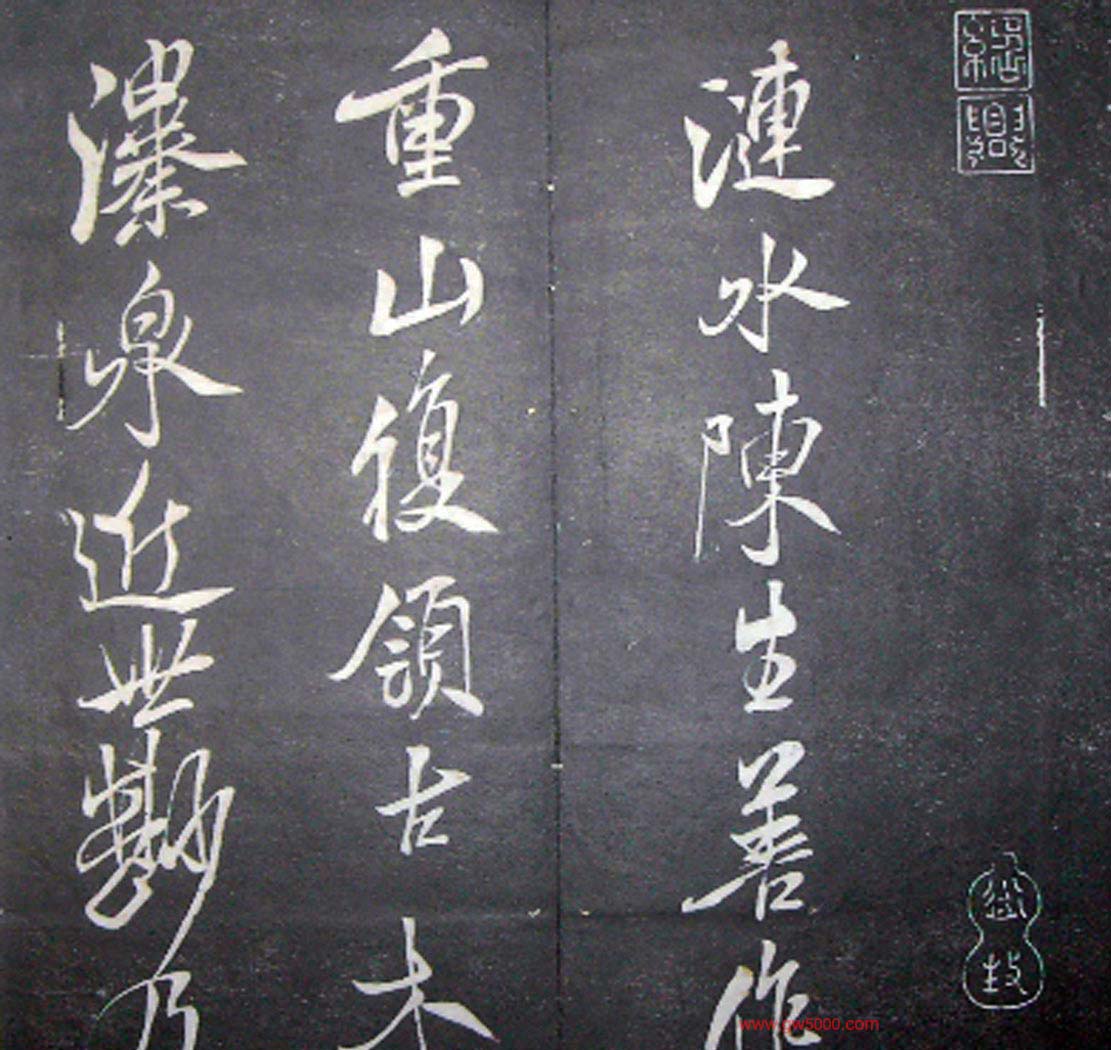 漣水陳生善作
重山復領古木
瀑泉近世乃
www.gw5000.com